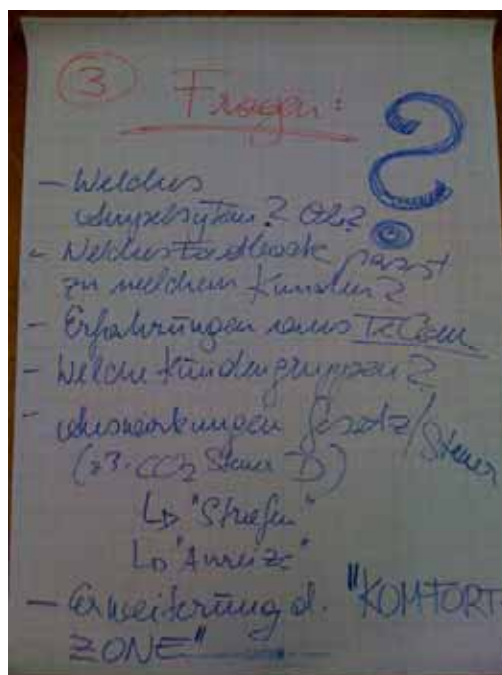 3 Fragen:
?
- Welches
Ampelsystem? Ob?
- Welches Feedback passt
zu welchem Kunden?
- Erfahrungen
- Welche Kundengruppen?
- Auswirkungen Gesetz/Steuer
(z.B. CO2 Steuer D)
↳ "Strafen"
↳ "Anreize"
- Erweiterung d. "KOMFORT
ZONE"